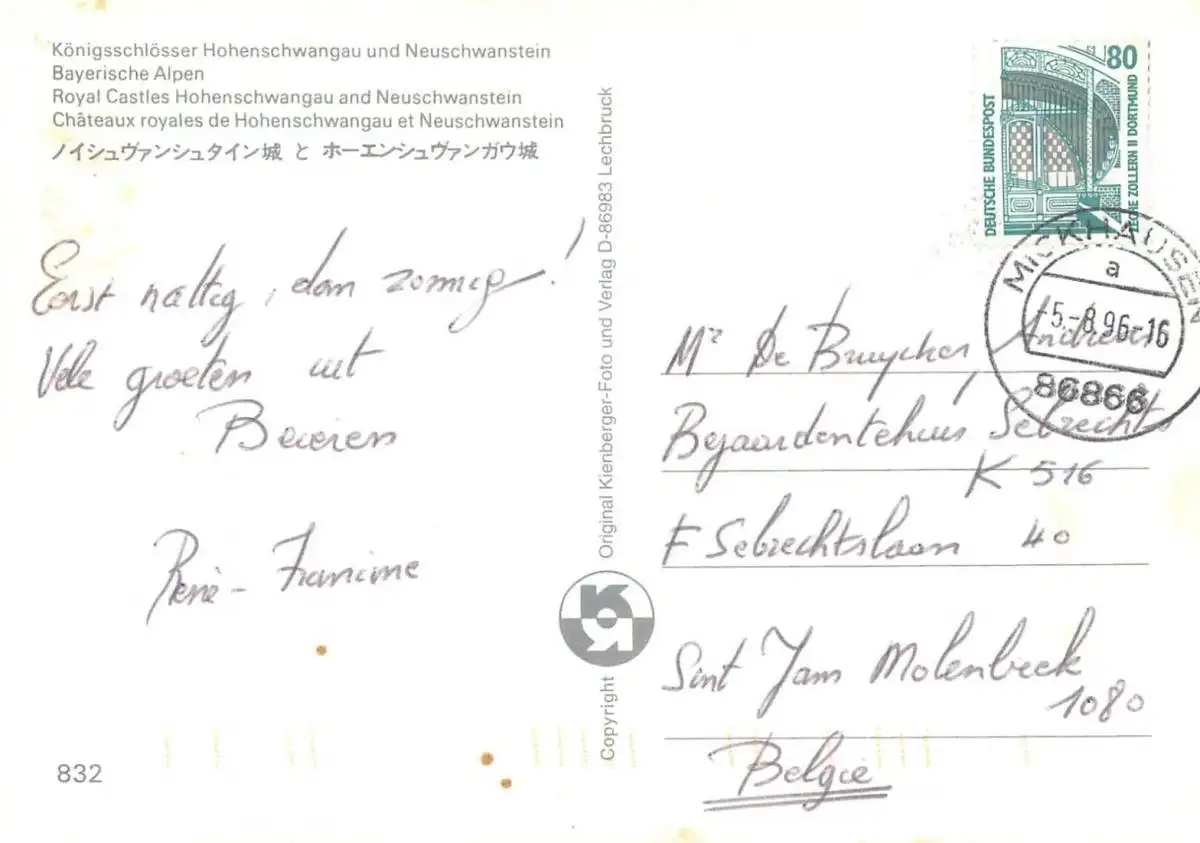 Königsschlösser Hohenschwangau und Neuschwanstein
Bayerische Alpen
Royal Castles Hohenschwangau and Neuschwanstein
Châteaux royales de Hohenschwangau et Neuschwanstein
ノイシュヴァンシュタイン城 と ホーエンシュヴァンガウ城
Eerst nattig, dan zonnig!
Vele groeten uit
Beieren
René - Francine
832
Original Kienberger-Foto und Verlag D-86983 Lechbruck
Copyright
80
DEUTSCHE BUNDESPOST
ZECHE ZOLLERN II DORTMUND
MICKHAUSEN
a
-5.-8.96-16
86866
Mr De Bruycker Andreas
Bejaardentehuis Sebrechts
K 516
F Sebrechtslaan 40
Sint Jans Molenbeek
1080
Belgie